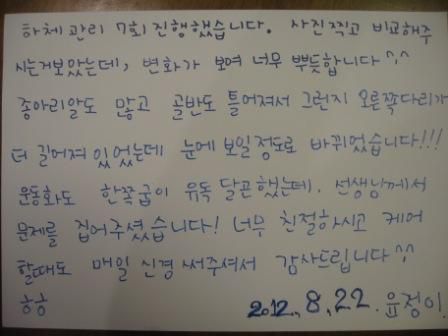 하체 관리 7회 진행했습니다. 사진찍고 비교해주
시는거보았는데, 변화가 보여 너무 뿌듯합니다^^
종아리알도 많고 골반도 틀어져서 그런지 오른쪽다리가
더 길어져 있었는데 눈에 보일정도로 바뀌었습니다!!!
운동화도 한쪽굽이 유독 닳곤했는데, 선생님께서
문제를 집어주셨습니다! 너무 친절하시고 케어
할때도 매일 신경써주셔서 감사드립니다^^
ㅎㅎ 2012. 8. 22. 윤정이.